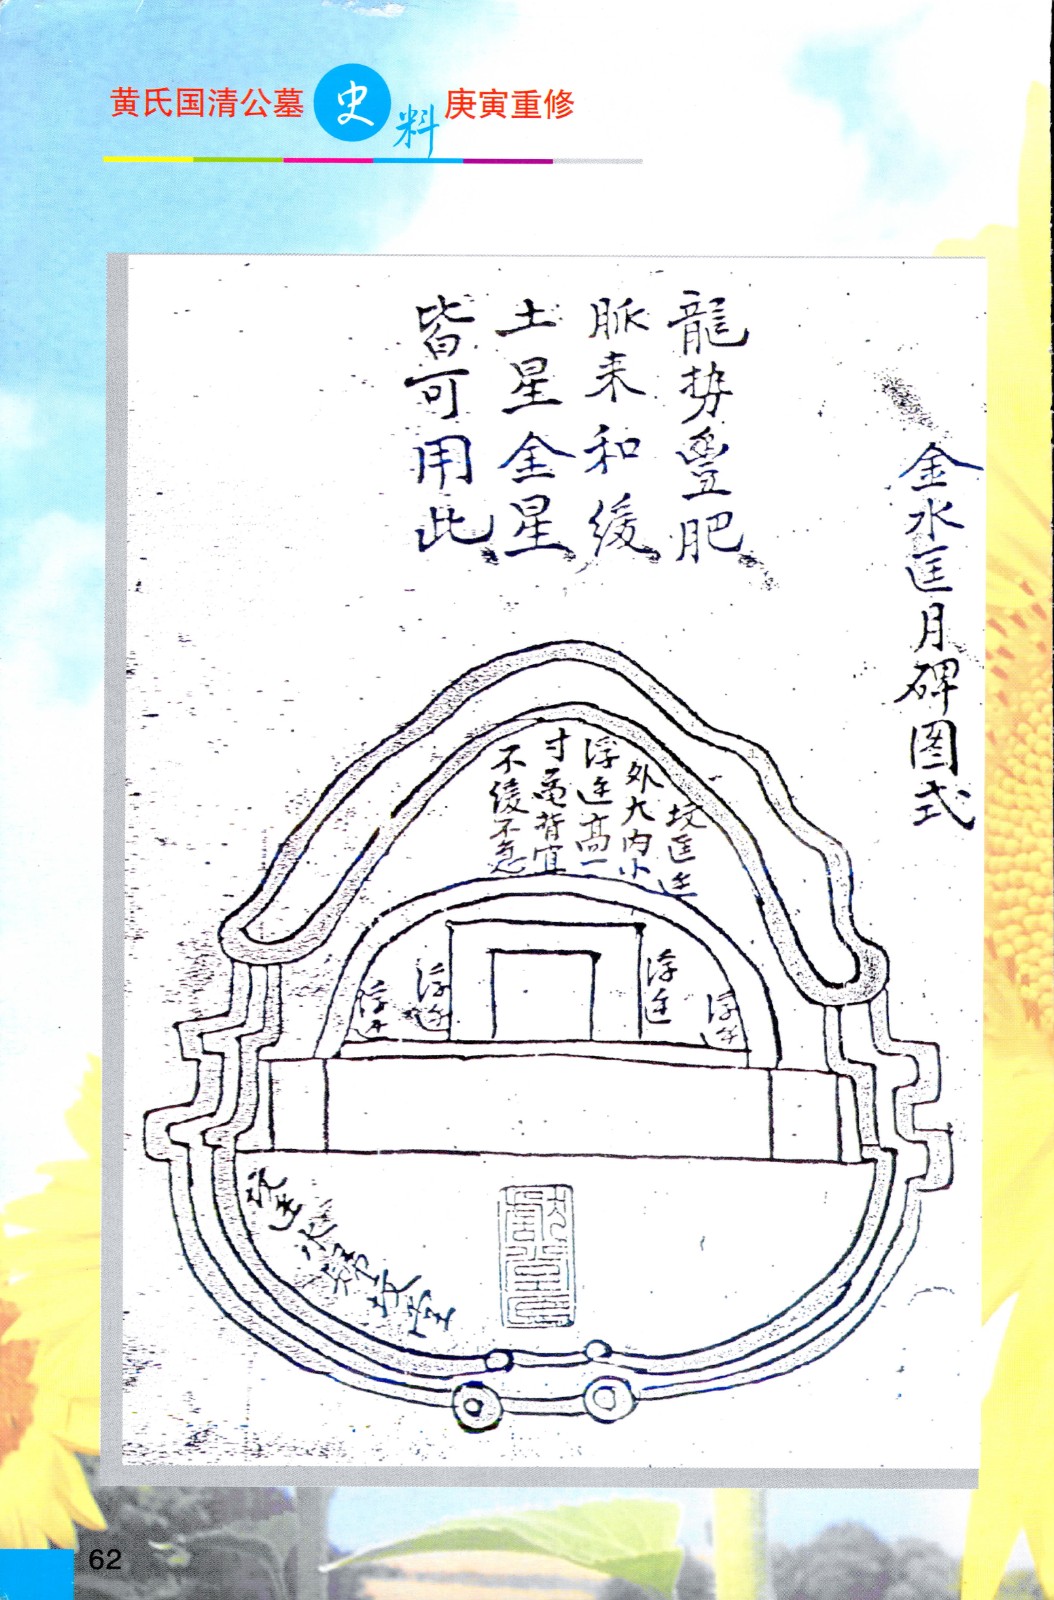 黄氏国清公墓史料庚寅重修
金水匡月碑图式
龍势豐肥
脈来和緩
土星金星
皆可用此
坟匡迋
外大内小
浮迋高一
寸黾背宜
不緩不急
浮迋
浮迋
浮迋
浮迋
62